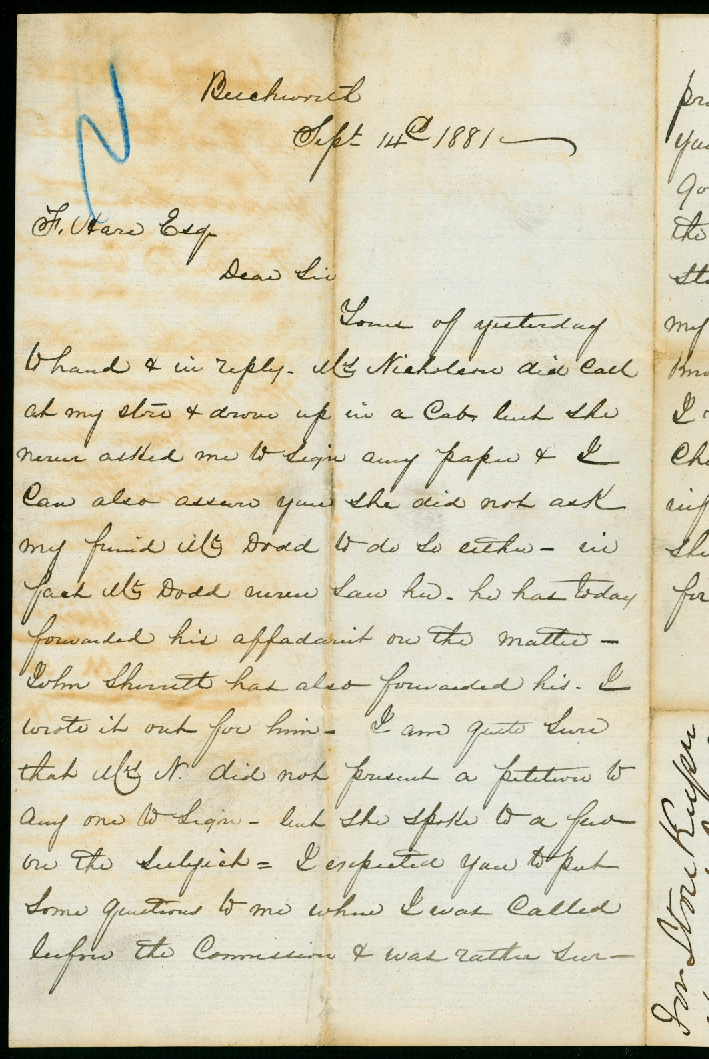 Beechworth
Sept 14th 1881
F. Hare Esq
Dear Sir
Yours of yesterday
to hand & in reply. Mrs Nicholson did call
at my store & drove up in a Cab, but she
never asked me to sign any paper & I
Can also assure you she did not ask
my friend Mr Dodd to do so either - in
fact Mr Dodd never saw her. he has today
forwarded his affadavit on the matter -
John Sherritt has also forwarded his. I
wrote it out for him - I am quite sure
that Mrs N. did not present a petition to
any one to sign - but she spoke to a few
on the subject = I expected you to put
some questions to me when I was Called
before the Commission & was rather sur-
pr
you
go
the
st
my
I
Ch
she
for